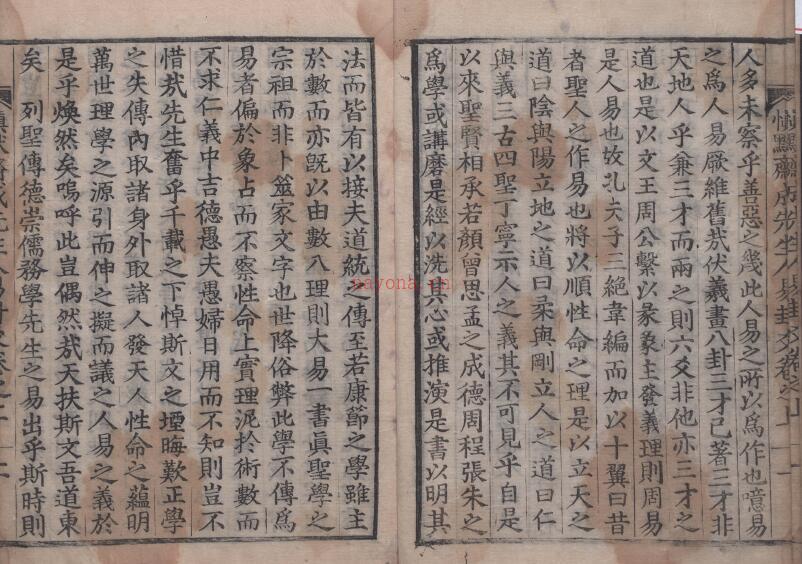 人多未察乎善惡之幾此人易之所以爲作也噫易
之爲人易厥維舊㢤伏羲畫八卦三才已著三才非
天地人乎兼三才而兩之則六爻非他亦三才之
道也是以文王周公繫以彖象主發義理則周易
是人易也故孔夫子三絶韋編而加以十翼曰昔
者聖人之作易也將以順性命之理是以立天之
道曰陰與陽立地之道曰柔與剛立人之道曰仁
與義三古四聖丁寧示人之義其不可見乎自是
以來聖賢相承若顔曾思孟之成德周程張朱之
爲學或講磨是經以洗其心或推演是書以明其
法而皆有以接夫道統之傳至若康節之學雖主
於數而亦旣以由數入理則大易一書眞聖學之
宗祖而非卜筮家文字也世降俗弊此學不傳爲
易者偏於象占而不察性命上實理泥於術數而
不求仁義中吉德愚夫愚婦日用而不知則豈不
惜㢤先生奮乎千載之下悼斯文之堙晦歎正學
之失傳內取諸身外取諸人發天人性命之蘊明
萬世理學之源引而伸之擬而議之人易之義於
是乎煥然矣嗚呼此豈偶然㢤天扶斯文吾道東
矣 列聖傳德崇儒務學先生之易出乎斯時則
nayona.cn